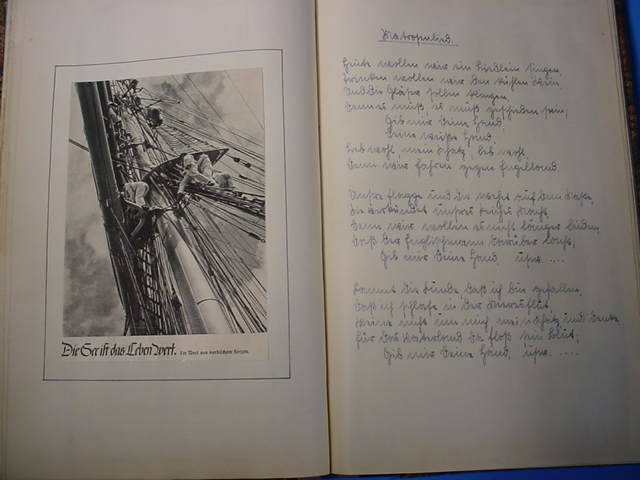 Die See ist das Leben wert. Ein Wort aus nordischem Herzen.
Matrosenlied.
Heute wollen wir ein Liedlein singen,
Trinken wollen wir den kühlen Wein
Und die Gläser sollen klingen
Denn es muß, es muß geschieden sein,
Gib mir Deine Hand,
Deine weiße Hand,
Leb wohl, mein Schatz, leb wohl
Denn wir fahren gegen Engelland.
Unsre Flagge und die wehet auf dem Maste,
Sie verkündet unsres Reiches Macht,
Denn wir wollen es nicht länger leiden,
Daß der Englischmann darüber lacht,
Gib mir Deine Hand usw. ....
Kommt die Kunde, daß ich bin gefallen,
Daß ich schlafe in der Meeresflut,
Weine nicht um mich, mein Schatz und denke,
Für das Vaterland da floß sein Blut,
Gib mir Deine Hand, usw. ....